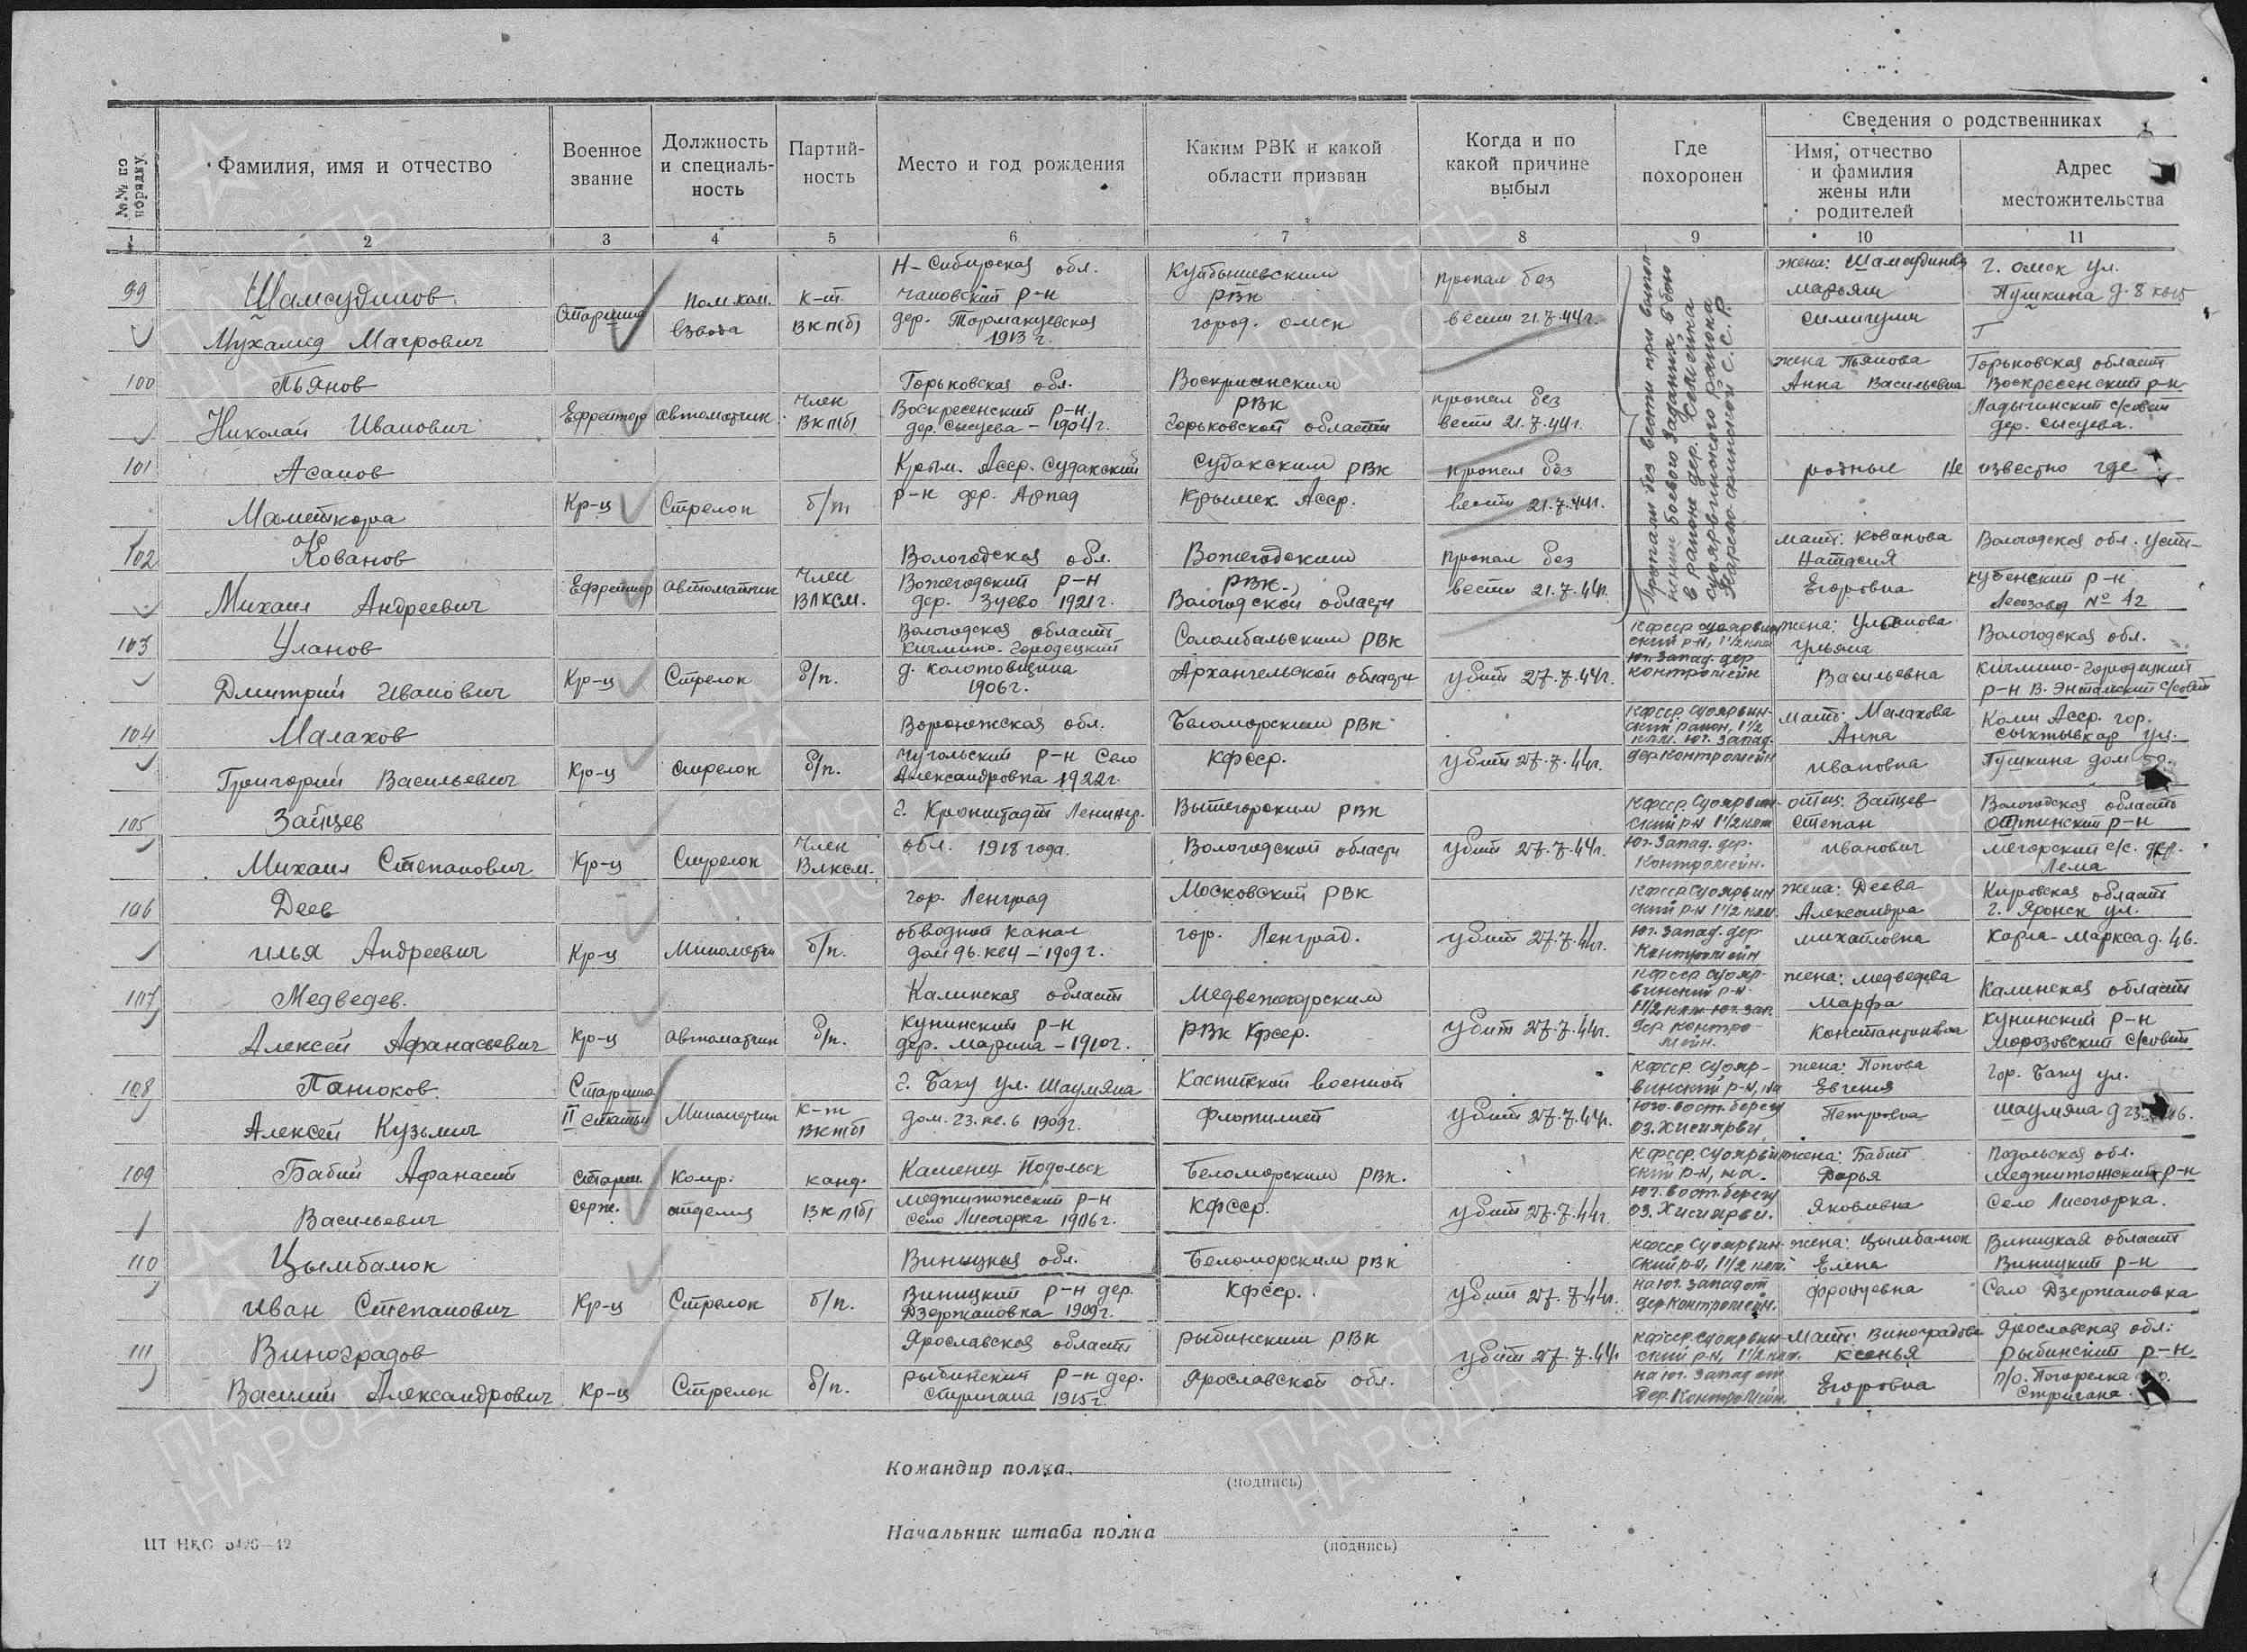 №№ по порядку.
Фамилия, имя и отчество
Военное звание
Должность и специаль-
ность
Партий-
ность
Место и год рождения
Каким РВК и какой области призван
Когда и по какой причине выбыл
Где похоронен
Сведения о родственниках
Имя, отчество и фамилия жены или родителей
Адрес местожительства
1 2 3 4 5 6 7 8 9 10 11
99
Шамсудинов
Мухамед Магрович
Старшина
Пом. ком.
взвода
к-т
ВКП(б)
Н-Сибирская обл.
Чановский р-н
дер. Тармакуевская
1913 г.
Куйбышевским
РВК
город. Омск
пропал без
вести 21.7.44г.
Пропали без вести при выпол-
нении боевого задания в бою
в районе дер.
Суоярвинского района
Карело-финской С.С.Р
жена: Шамсудинова
Марьям
г. Омск ул.
Пушкина д. 8
100
Пьянов
Николай Иванович
Ефрейтор
автоматчик
Член
ВКП(б)
Горьковская обл.
Воскресенский р-н.
дер. Сысуева - 1904г.
Воскрисенским
РВК
Горьковской области
пропал без
вести 21.7.44г.
жена Пьянова
Анна Васильевна
Горьковская област
Воскресенский р-н
Ладыгинский с/совет
дер. Сысуева.
101
Асанов
Маметкора
Кр-ц
Стрелок
б/п
Крым. Асср. Судакский
р-н дер. Арпад
Судакским РВК
Крымск. Асср.
пропал без
вести 21.7.44г.
родные не известно где
102
Кованов
Михаил Андреевич
Ефрейтор
автоматчик
Член
ВЛКСМ.
Вологодская обл.
Вожегодский р-н
дер. Зуево 1921г.
Вожегодским
РВК.
Вологодской области
пропал без
вести 21.7.44г.
мать: Кованова
Наталия
Егоровна
Вологодская обл. Усть-
кубенский р-н
Лесозавод № 42
103
Уланов
Дмитрий Иванович
Кр-ц
Стрелок
б/п.
Вологодская область
Кичмино-Городецкий
д. Колотовщина
1906г.
Соломбальским РВК
Архангельской области
убит 27.7.44г.
Кфсср Суоярвин
ский р-н, 1 1/2 клм
Юг. Запад. дер
Контромейн
жена: Уланова
Ульяна
Васильевна
Вологодская обл.
Кичмино-Городецкий
р-н В. Энтальский с/совет
104
Малахов
Григорий Васильевич
Кр-ц
стрелок
б/п.
Воронежская обл.
Чугольский р-н село
Александровка 1922г.
Беломорским РВК
Кфсср.
убит 27.7.44г.
Кфсср Суоярвин-
ский район, 1 1/2
клм. Юг. Запад.
дер Контромейн
мать: Малахова
Анна
Ивановна
Коми Асср. гор.
Сыктывкар ул.
Пушкина дом
105
Зайцев
Михаил Степанович
Кр-ц
Стрелок
Член
Влксм.
г. Кронштадт Ленингр.
обл. 1918 года.
Вытегорским РВК
Вологодской области
убит 27.7.44г.
Кфсср. Суоярвин-
ский р-н 1 1/2 клм
Юг. Запад. дер.
Контромейн.
отец: Зайцев
Степан
Иванович
Вологодская область
р-н
Мегорский с/с. дер.
Лема
106
Деев
Илья Андреевич
Кр-ц
Минометчи
б/п.
гор. Ленград
обводной канал
1909г.
Московский РВК
гор. Ленград.
убит 27.7.44г.
Кфсср Суоярвин
ский р-н 1 1/2 клм.
Юг. Запад. дер
Контромейн
жена: Деева
Александра
Михайловна
Кировская область
г. Яронск ул.
Карла-Маркса д. 46.
107
Медведев.
Алексей Афанасьевич
Кр-ц
автоматчик
б/п.
Калинская область
Кунинский р-н
дер. Марина - 1910г.
Медвежегорским
РВК Кфсср.
убит 27.7.44г.
Кфсср Суояр-
винский р-н
1 1/2 клм. юг. зап.
дер. Контро-
мейн.
жена: Медведева
Марфа
Константиновна
Калинская область
Кунинский р-н
Морозовский с/совет
108
Панюков.
Алексей Кузьмич
Старшина
II статьи
Минометчик
к-т
ВКП(б)
г. Баку ул. Шаумяна
дом. 23. кв. 6 1909г.
Каспийской военной
Флотилией
убит 27.7.44г.
Кфсср. Суояр-
винский р-н, на
Юго. вост. берегу
оз. Хисиярви
жена: Попова
Евгения
Петровна
гор. Баку ул.
Шаумяна д 23.
109
Бабий Афанасий
Васильевич
Старш.
серж.
Комр.
отделия
канд.
ВКП(б)
Каменец Подольск
Меджиможский р-н
село Лисогорка 1906г.
Беломорским РВК.
Кфсср.
убит 27.7.44г.
Кфсср. Суоярвин
ский р-н, на.
Юг. вост. берегу
оз. Хисиярви.
жена: Бабий
Дарья
Яковлевна
Подольская обл.
Меджитожский р-н
Село Лисогорка.
110
Цымбалюк
Иван Степанович
Кр-ц
Стрелок
б/п.
Виницкая обл.
Виницкий р-н дер.
Дзержановка 1909г.
Беломорским РВК
Кфсср.
убит 27.7.44г.
Кфсср Суоярвин-
ский р-н, 1 1/2 клм.
на юг. запад от
дер Контромейн.
жена: Цымбалюк
Елена
Виницкая область
Виницкий р-н
Село Дзержановка
111
Виноградов
Василий Александрович
Кр-ц
Стрелок
б/п.
Ярославская область
Рыбинский р-н дер.
Стригана 1915г.
Рыбинским РВК
Ярославской обл.
убит 27.7.44
Кфсср. Суоярвин-
ский р-н, 1 1/2 клм.
на юг. Запад от
дер. Контромейн.
Мать: Виноградова
Ксенья
Егоровна
Ярославская обл.
Рыбинский р-н
п/о. Погорелка
Стригана.
Командир полка
(подпись)
Начальник штаба полка
(подпись)
ПАМЯТЬ НАРОДА